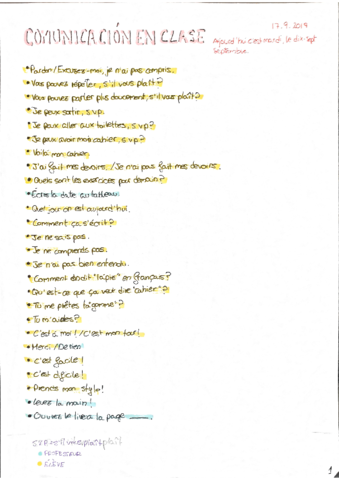 17.9.2019
COMUNICACIÓN EN CLASE
Aujourd'hui c'est mardi, le dix-sept
septembre.
• Pardon/Excusez-moi, je n'ai pas compris.
• Vous pouvez répéter, s'il vous plaît?
• Vous pouvez parler plus doucement, s'il vous plaît?
• Je peux sortir, s.v.p.
• Je peux aller aux toilettes, s.v.p?
• Je peux avoir mon cahier, s.v.p?
• Voilà mon cahier.
• J'ai fait mes devoirs./Je n'ai pas fait mes devoirs.
• Quels sont les exercices pour demain?
• Écris la date au tableau.
• Quel jour on est aujourd'hui.
• Comment ça s'écrit?
• Je ne sais pas.
• Je ne comprends pas.
• Je n'ai pas bien entendu.
• Comment dit "lápiz" en français?
• Qu'est-ce que ça veut dire "cahier"?
• Tu me prêtes ta "gomme"?
• Tu m'aides?
• C'est à moi!/C'est mon tour!
• Merci/De rien
• C'est facile!
• C'est dificile!
• Prends mon stylo!
• Levez la main!
• Ouvrez le livre à la page
S.V.P = s'il vous plaît
• PROFESSEUR
• ÉLÈVE
1